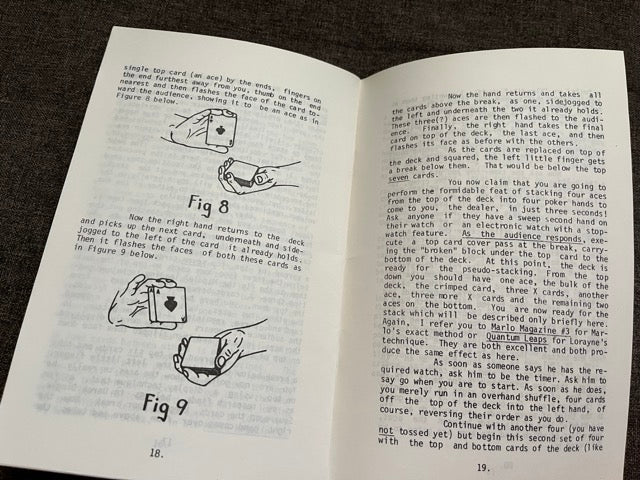 single top card (an ace) by the ends, fingers on
the end furthest away from you, thumb on the end
nearest and then flashes the face of the card to-
ward the audience, showing it to be an ace as in
Figure 8 below.
Fig 8
Now the right hand returns to the deck
and picks up the next card, underneath and side-
jogged to the left of the card it already holds.
Then it flashes the faces of both these cards as
in Figure 9 below.
A
Fig 9
18.
Now the hand returns and takes all
the cards above the break, as one, sidejogged to
the left and underneath the two it already holds.
These three(?) aces are then flashed to the audi-
ence. Finally, the right hand takes the final
card on top of the deck, the last ace, and then
flashes its face as before with the others.
As the cards are replaced on top of
the deck and squared, the left little finger gets
a break below them. That would be below the top
seven cards.
You now claim that you are going to
perform the formidable feat of stacking four aces
from the top of the deck into four poker hands to
come to you, the dealer, in just three seconds!
Ask anyone if they have a sweep second hand on
their watch or an electronic watch with a stop-
watch feature. As the audience responds, exe-
cute a top card cover pass at the break, carry-
ing the "broken" block under the top card to the
bottom of the deck. At this point, the deck is
ready for the pseudo-stacking. From the top
down you should have one ace, the bulk of the
deck, the crimped card, three X cards, another
ace, three more X cards and the remaining two
aces on the bottom. You are now ready for the
stack which will be described only briefly here.
Again, I refer you to Marlo Magazine #3 for Mar-
lo's exact method or Quantum Leaps for Lorayne's
technique. They are both excellent and both pro-
duce the same effect as here.
As soon as someone says he has the re-
quired watch, ask him to be the timer. Ask him to
say go when you are to start. As soon as he does,
you merely run in an overhand shuffle, four cards
off the top of the deck into the left hand, of
course, reversing their order as you do.
Continue with another four (you have
not tossed yet) but begin this second set of four
with the top and bottom cards of the deck (like
19.